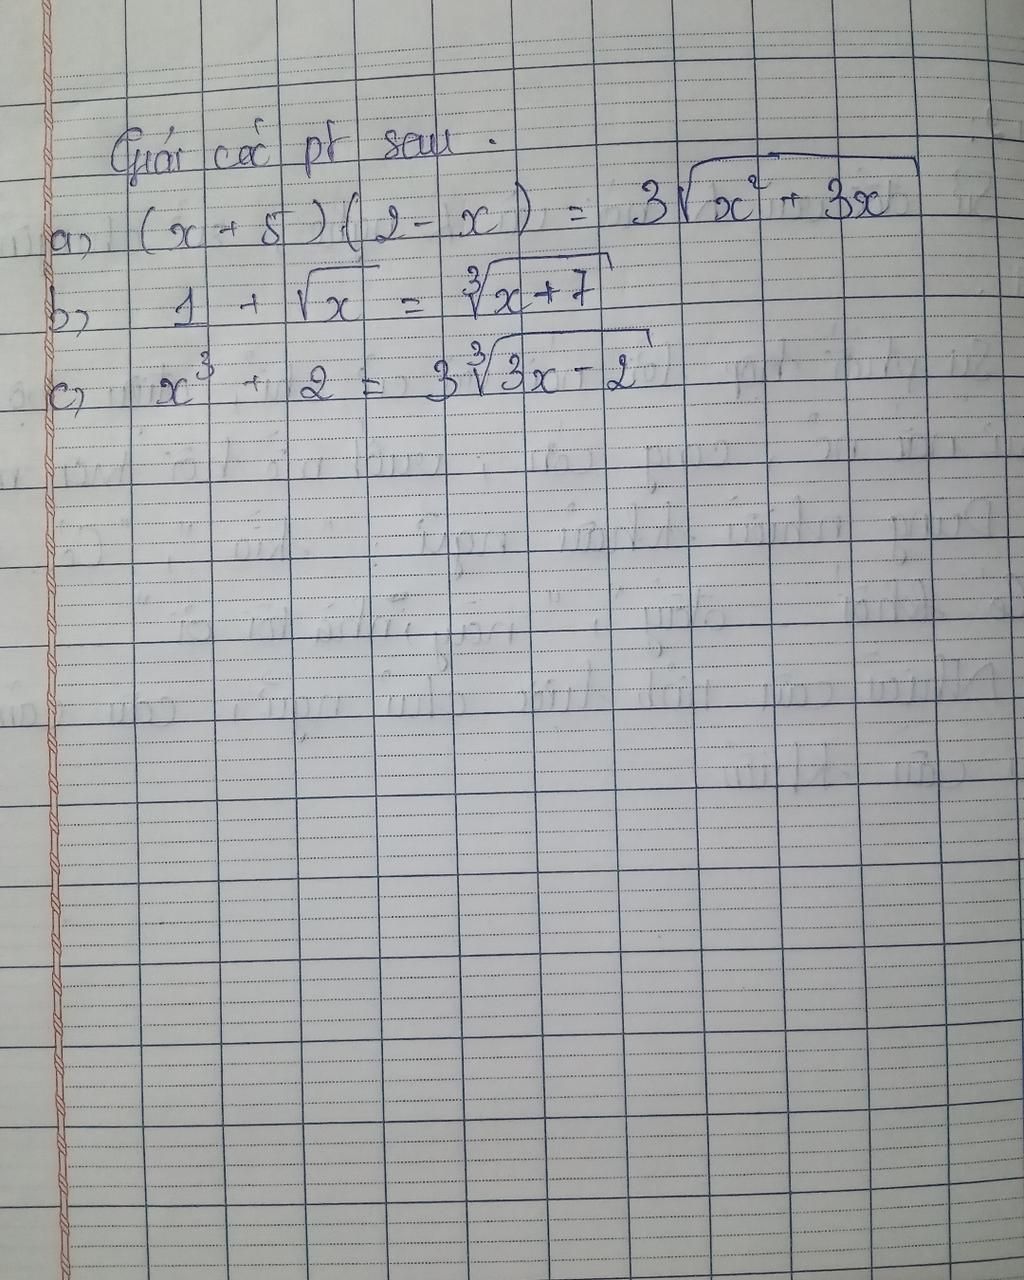 Giải các pt sau.
a, (x + 5)(2 - x) = 3√(x² + 3x)
b, 1 + √x = ∛(x + 7)
c, x³ + 2 = 3∛(3x - 2)